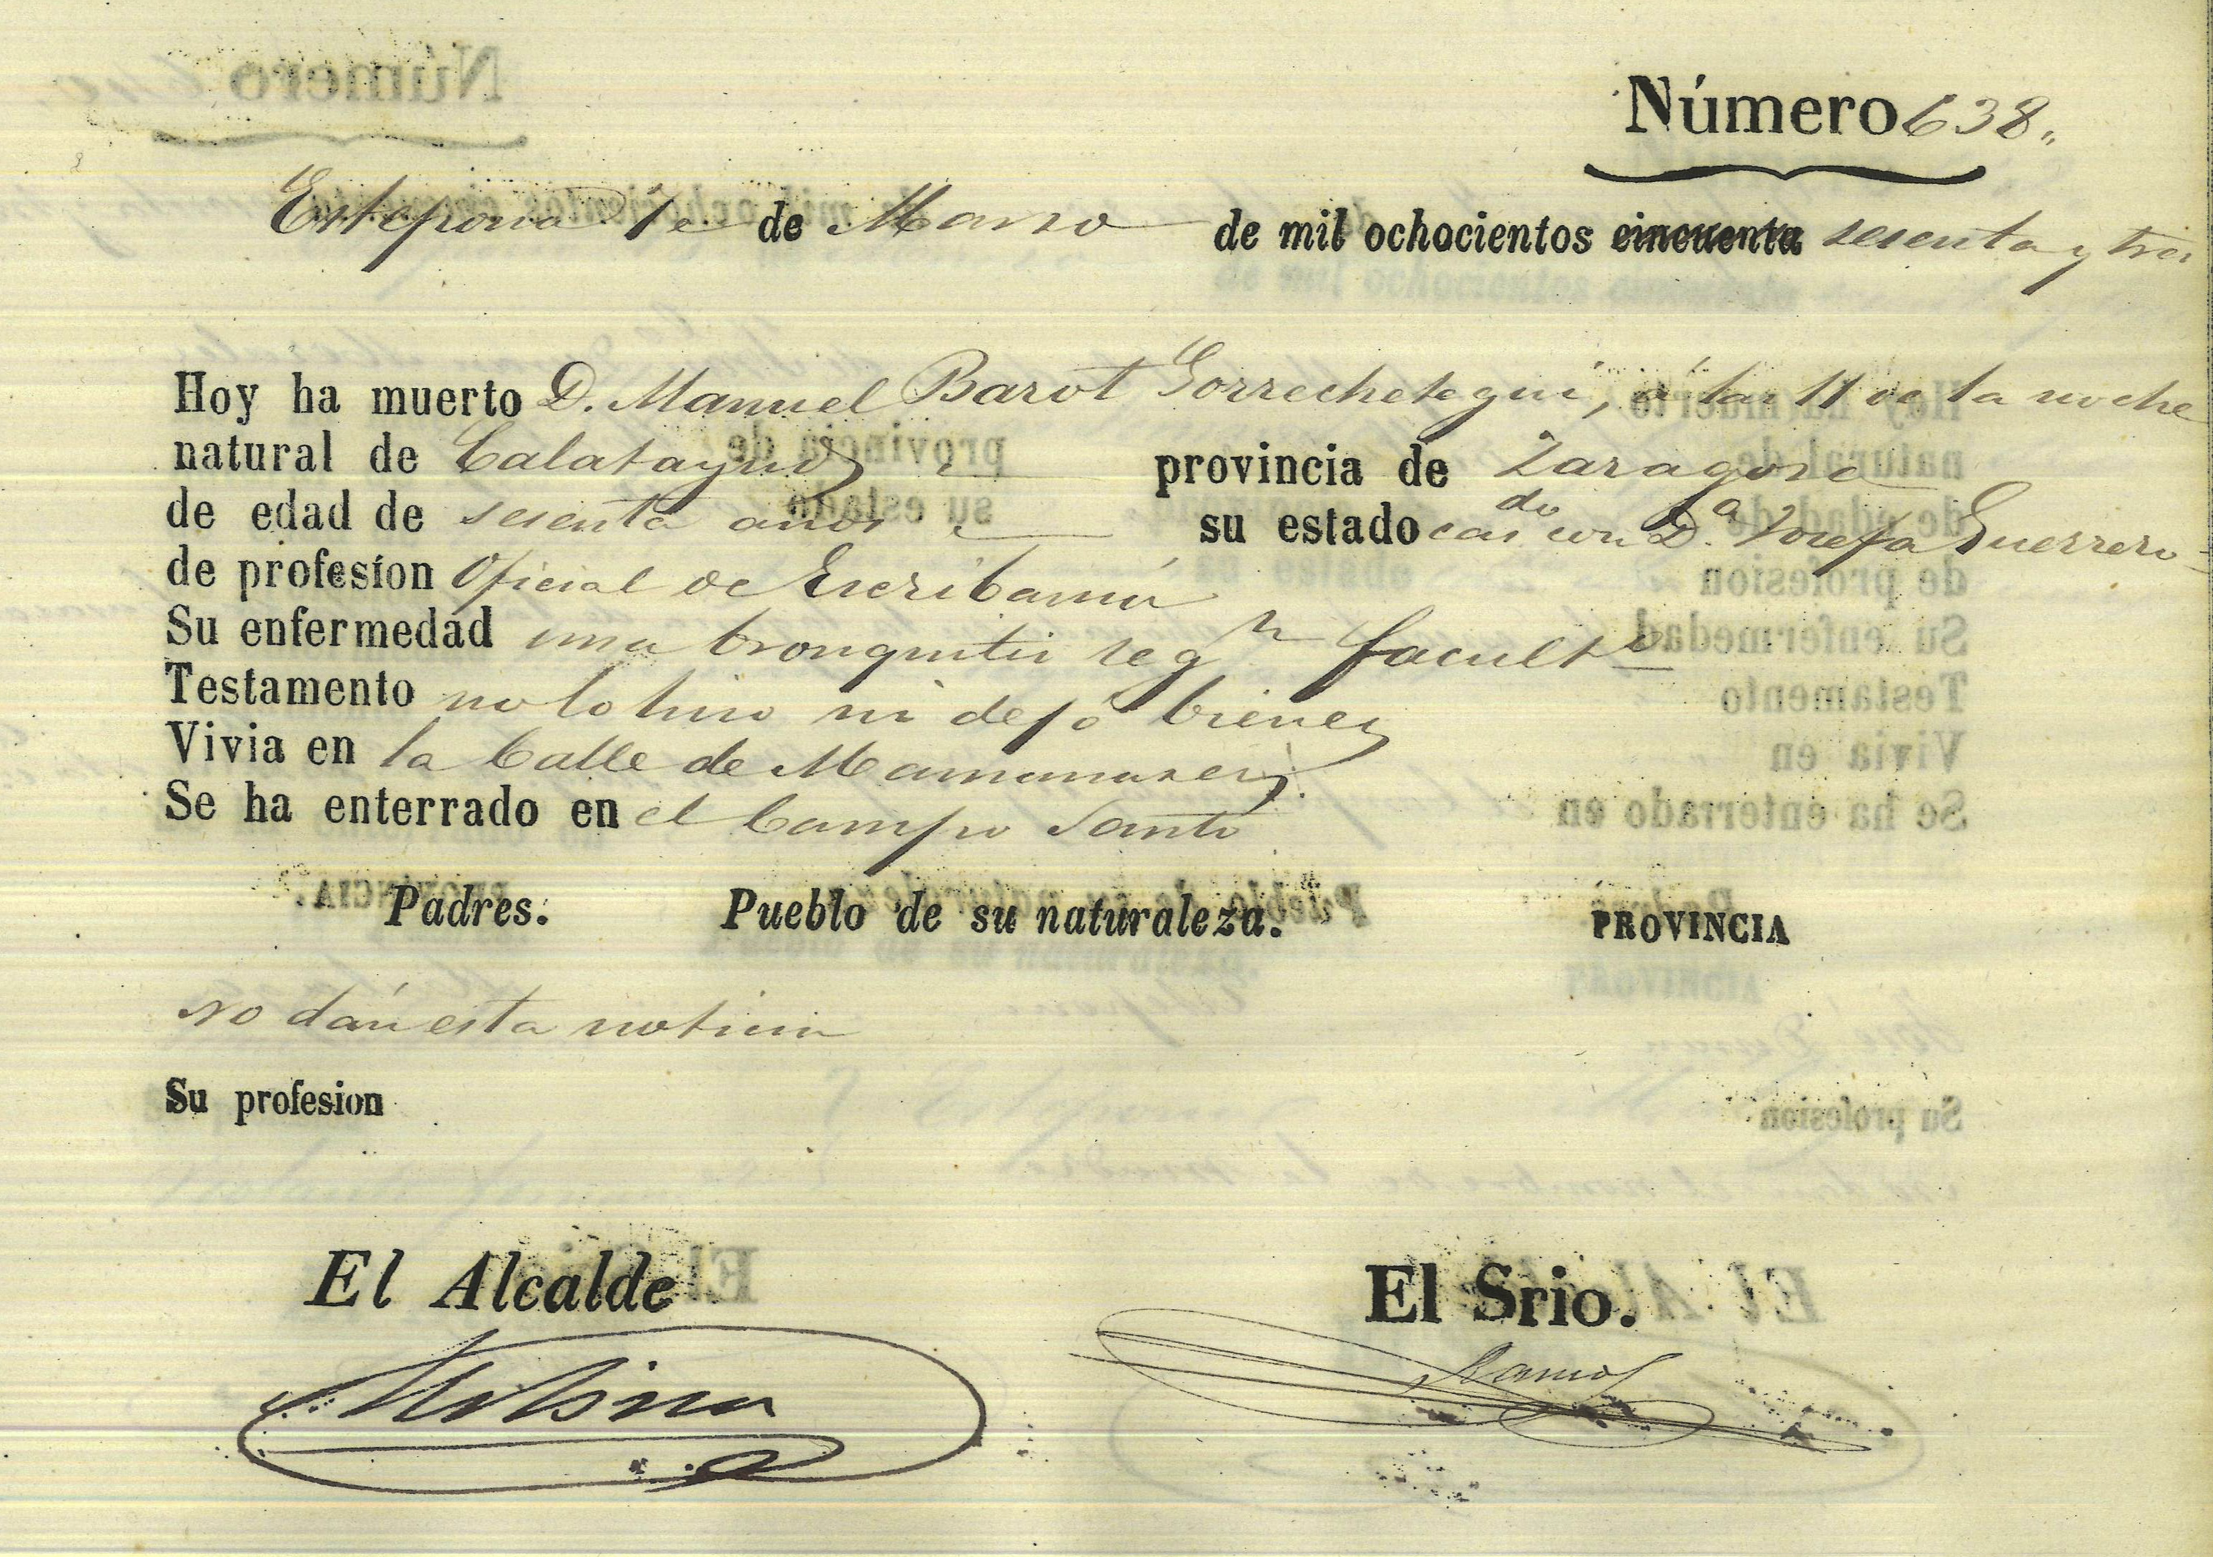 Número 638.
Estepona 1º de Marzo de mil ochocientos cincuenta sesenta y tres
Hoy ha muerto D. Manuel Barot Gorrechetegui, á las 11 de la noche
natural de Calatayud provincia de Zaragoza
de edad de sesenta años su estado casdo con D.ª Josefa Guerrero
de profesion Oficial de Escribanía
Su enfermedad una bronquitis segn facultvo
Testamento no lo hizo ni dejó bienes
Vivia en la Calle de
Se ha enterrado en el Campo Santo
Padres. Pueblo de su naturaleza. PROVINCIA
no dán esta noticia
Su profesion
El Alcalde El Srio.
Molina Ramos